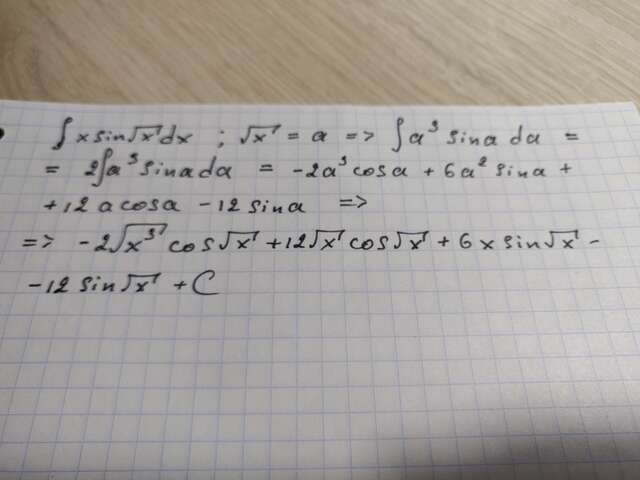 ∫ x sin√x dx ; √x = a => ∫ a³ sina da =
= 2∫a³ sina da = -2a³ cosa + 6a² sina +
+12 a cosa - 12 sina =>
=> -2√x³ cos√x + 12√x cos√x + 6x sin√x -
-12 sin√x + C